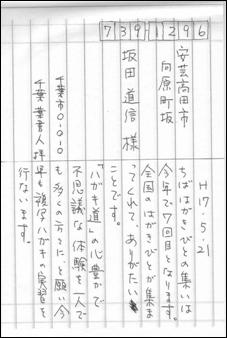 739-1296
安芸高田市
向原町坂
坂田道信様
千葉市0-0-0
千葉葉書人拝
H17.5.21
ちばはがきびとの集いは
今年で7回目となります。
全国のはがきびとが集ま
ってくれて、ありがたい
ことです。
「ハガキ道」の心豊かで
不思議な体験を一人で
も多くの方々に、と願い今
年も複写ハガキの実習を
行ないます。